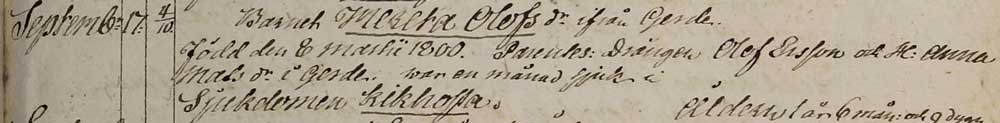 Septemb: 17: 4/10. Barnet Meretha Olofs dr ifrån Gerde.
Född den 8 martii 1800. Parentes: Drängen Olof Ersson och H: Anna
Mats dr i Gerde. war en månad sjuk i
Sjukdomen Kikhosta. Ålder 1 år 6 mån: och 9 dygn